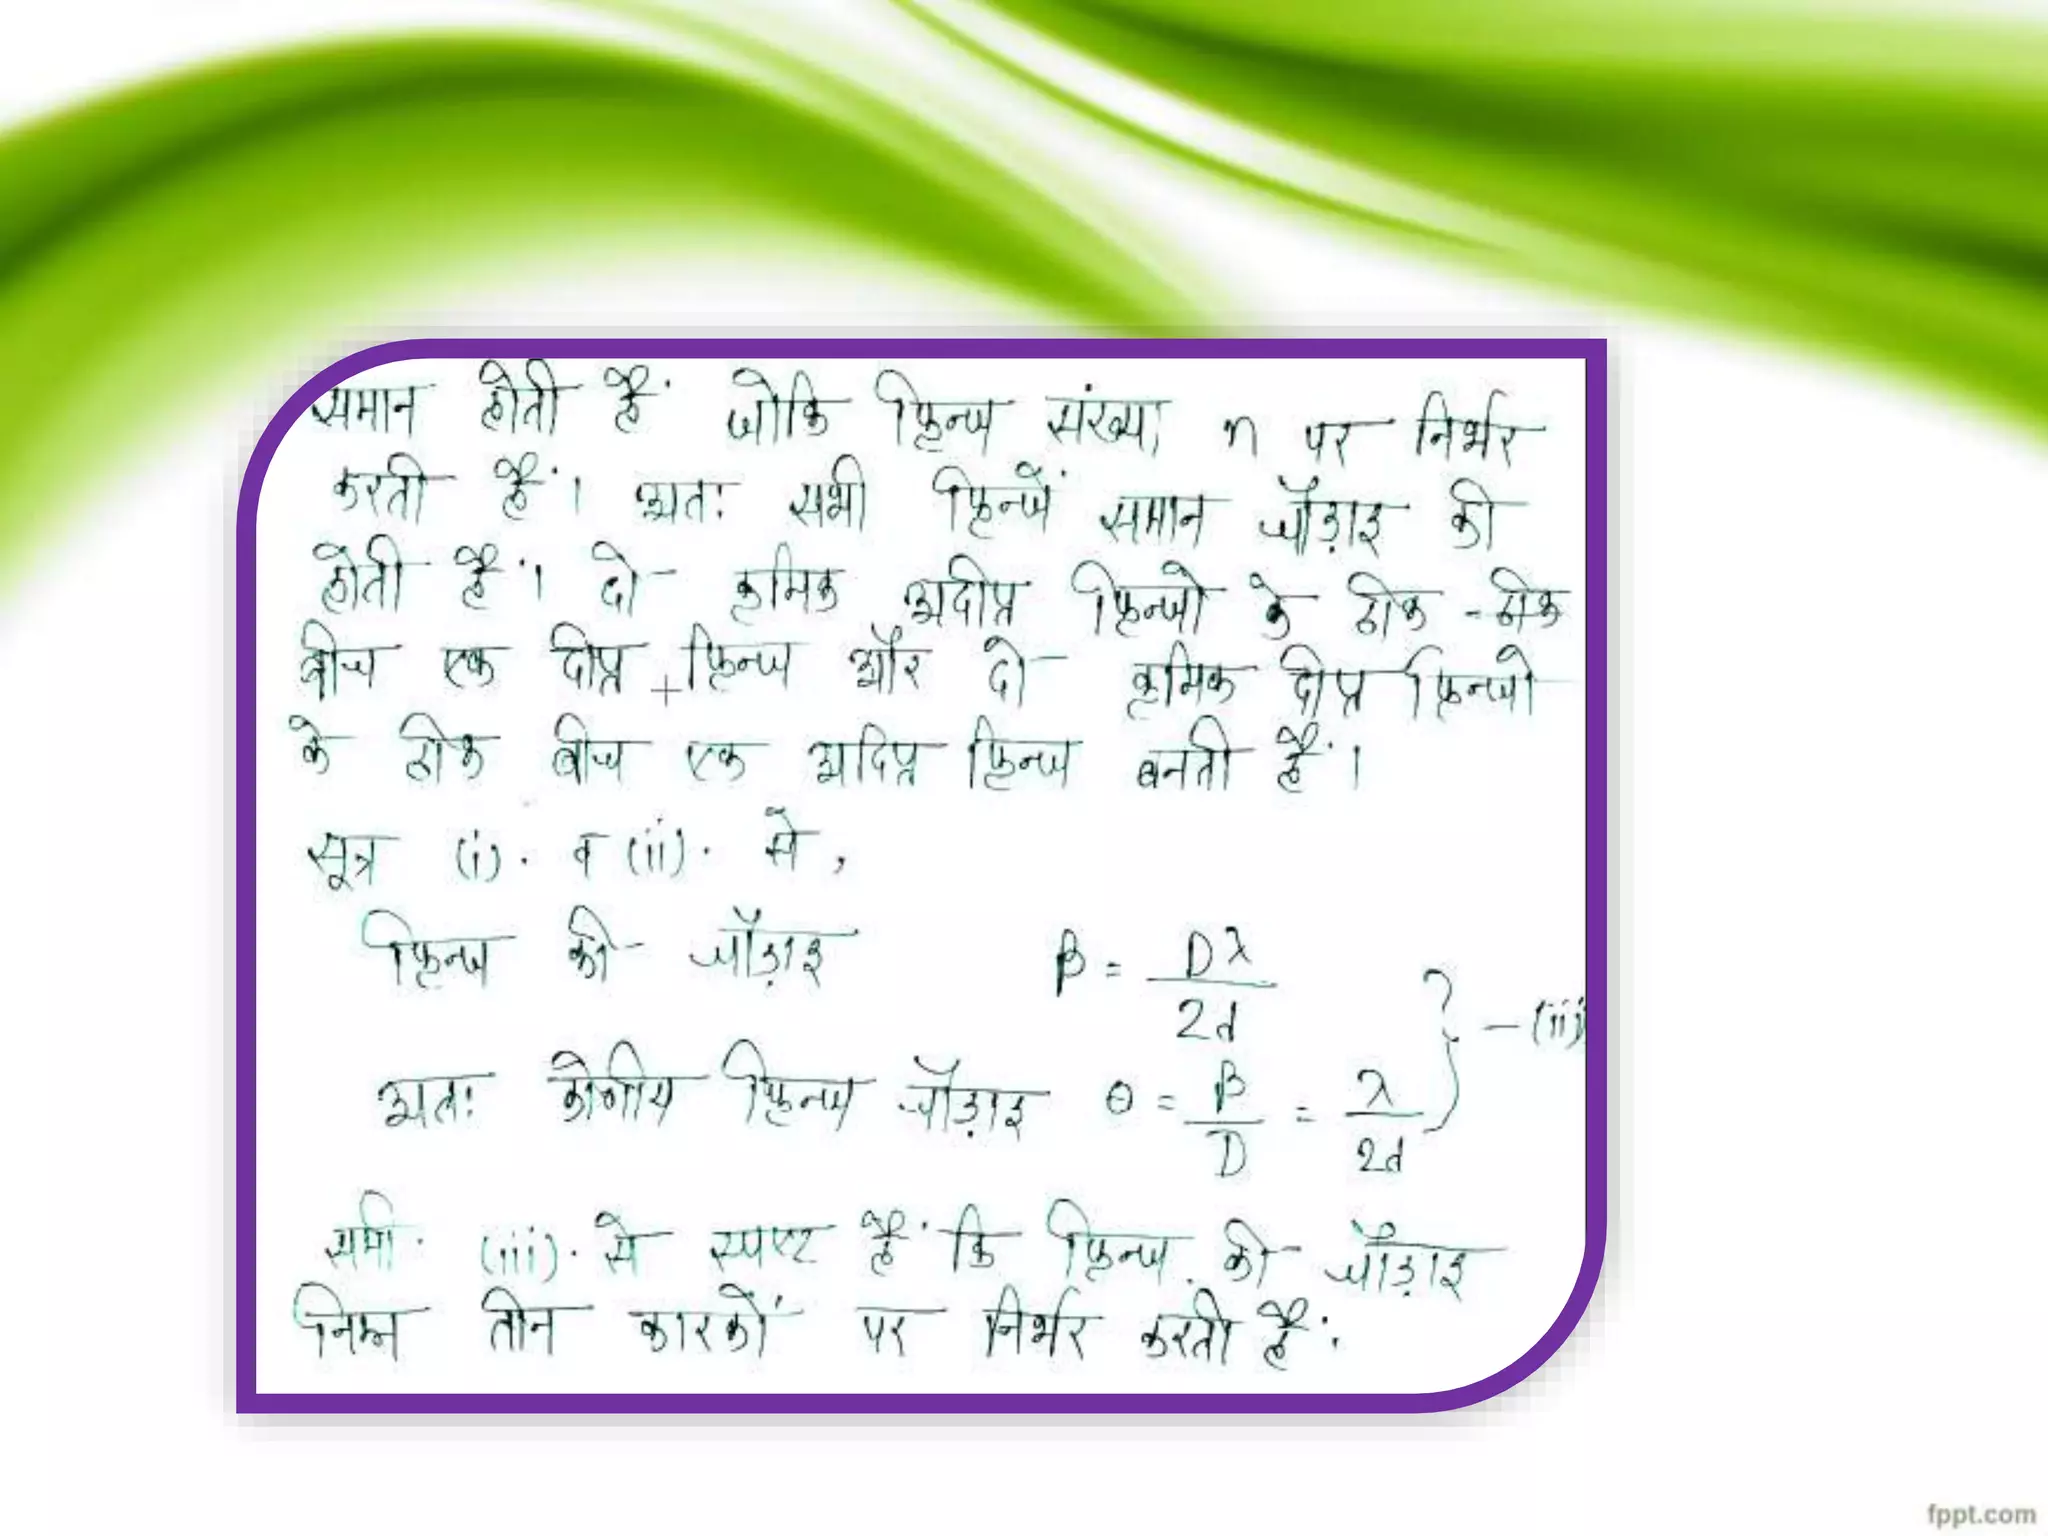 समान होती हैं जोकि फ्रिन्ज संख्या n पर निर्भर
करती हैं। अतः सभी फ्रिन्जें समान चौड़ाइ की
होती हैं। दो क्रमिक अदीप्त फ्रिन्जो के ठीक - ठीक
बीच एक दीप्त फ्रिन्ज और दो क्रमिक दीप्त फ्रिन्जो
के ठीक बीच एक अदिप्त फ्रिन्ज बनती हैं।
सूत्र (i). व (ii). से,
फ्रिन्ज की चौड़ाइ β = Dλ / 2d
अतः कोणीय फ्रिन्ज चौड़ाइ θ = β / D = λ / 2d } — (iii)
समी. (iii). से स्पष्ट हैं कि फ्रिन्ज की चौड़ाइ
निम्न तीन कारकों पर निर्भर करती हैं.
fppt.com